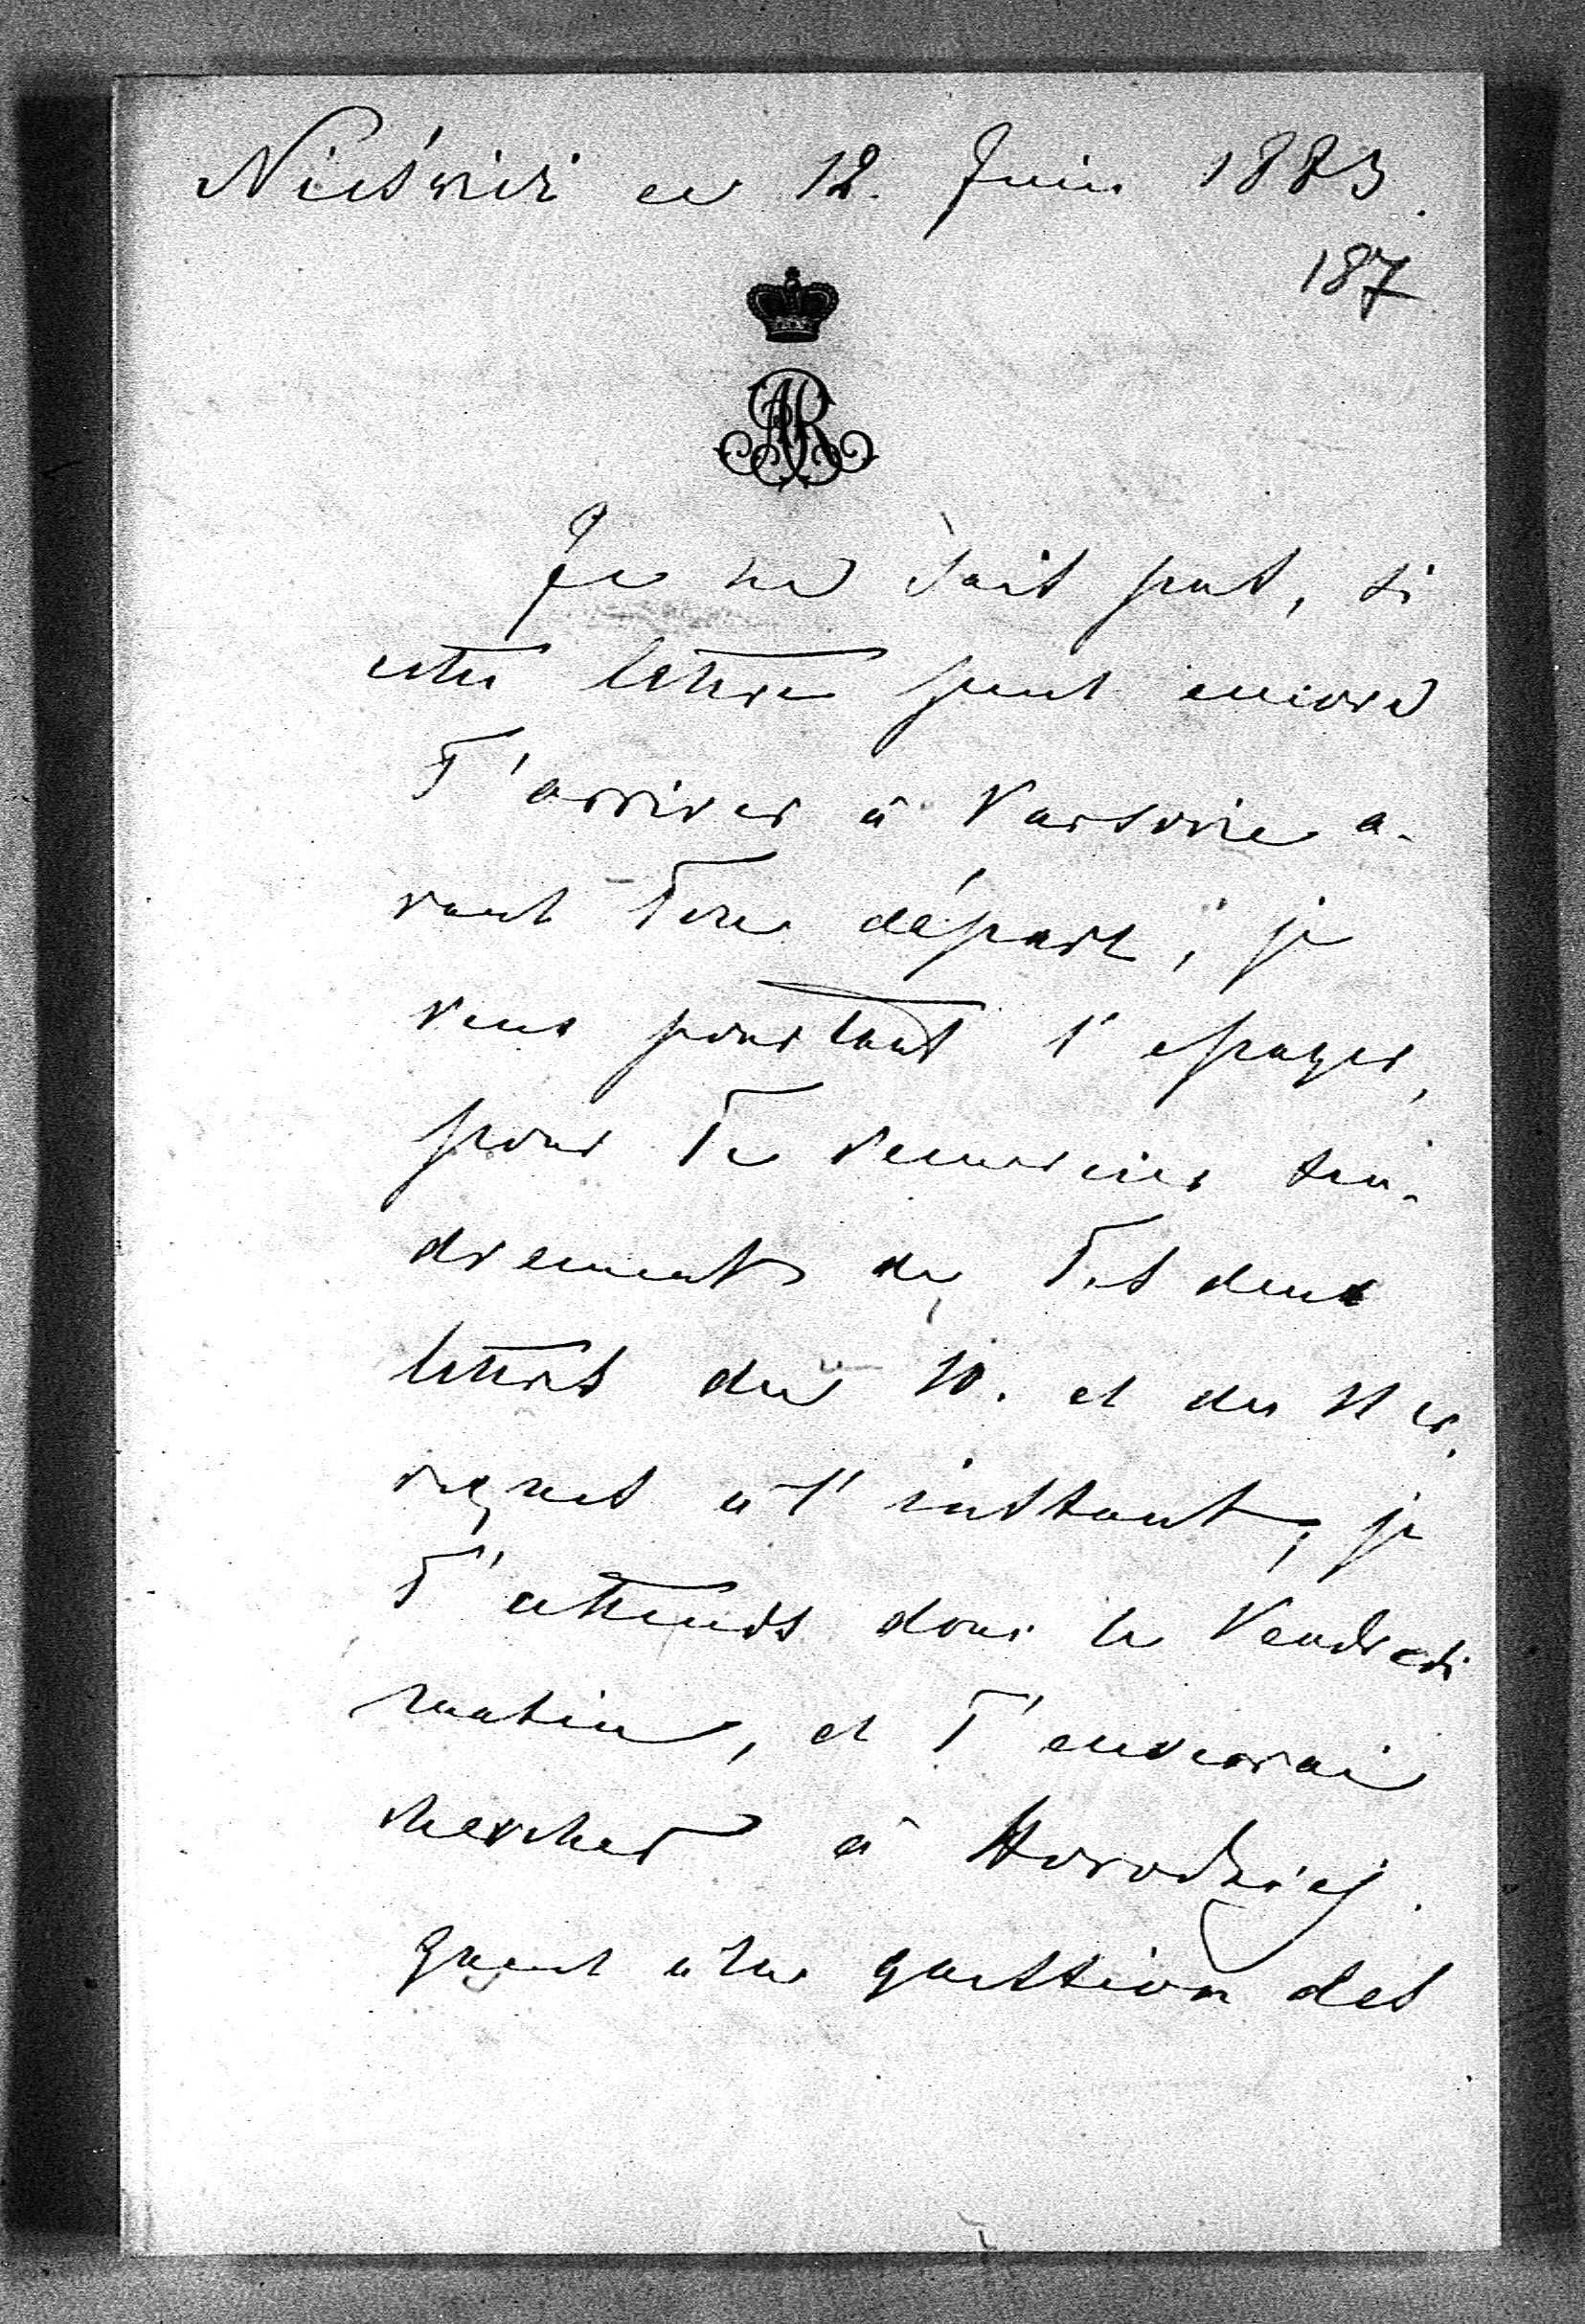 Nieśwież ce 12. Juin 1883.
187
AR
Je ne sais pas, si
cette lettre peut encore
T'arriver à Varsovie a-
vant Ton départ, je
veux pourtant l'essayer,
pour Te remercier ten-
drement de Tes deux
lettres du 10. et du 11 cr.
reçues à l'instant, je
T'attends donc le Vendredi
matin, et T'enverrai
chercher à Horodziej.
Quant à la question des